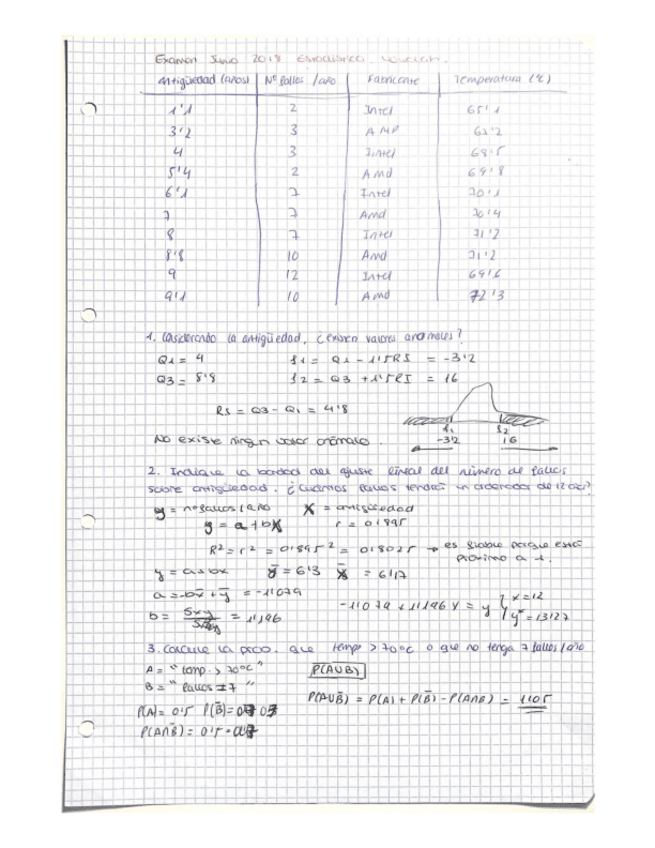 Examen Junio 2018 Estadística
Antigüedad (años) Nº fallos /año Fabricante Temperatura (ºC)
1'1 2 Intel 65'1
3'2 3 AMD 63'2
4 3 Intel 68'5
5'4 2 Amd 69'8
6'1 7 Intel 70'1
7 7 Amd 70'4
8 7 Intel 71'2
8'8 10 Amd 71'2
9 12 Intel 69'6
9'1 10 Amd 72'3
1. Considerando la antigüedad, ¿existen valores anómalos?
Q1 = 4 f1 = Q1 - 1'5RI = -3'2
Q3 = 8'8 f2 = Q3 + 1'5RI = 16
RI = Q3 - Q1 = 4'8
f1 f2
-3'2 16
No existe ningún valor anómalo.
2. Indique la bondad del ajuste lineal del número de fallos
sobre antigüedad. ¿Cuántos fallos tendrá un ordenador de 12 años?
y = nº fallos/año X = antigüedad
y = a + bX r = 0'895
R² = r² = 0'895² = 0'8025 → es fiable porque está
próximo a 1.
y = a + bx ȳ = 6'3 x̄ = 6'17
a = -bx̄ + ȳ = -1'1079
b = Sxy = 1'196
-1'1079 + 1'196 X = y { x = 12
y* = 13'27
3. Calcule la prob. que temp > 70ºC o que no tenga 7 fallos/año
A = "temp > 70ºC" P(A∪B̄)
B = "fallos = 7"
P(A∪B̄) = P(A) + P(B̄) - P(A∩B̄) = 1'05
P(A) = 0'5 P(B̄) = 0'7
P(A∩B̄) = 0'5 · 0'7